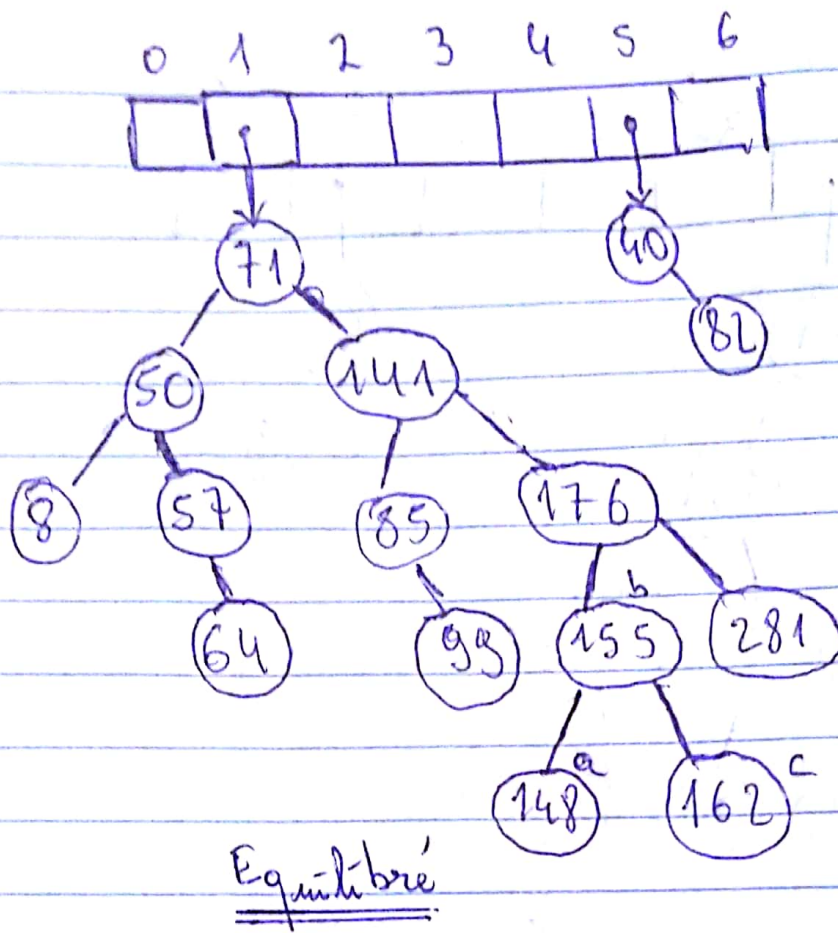 0 1 2 3 4 5 6
71 40
82
50 141
8 57 85 176
b
64 99 155 281
a c
148 162
Equilibré